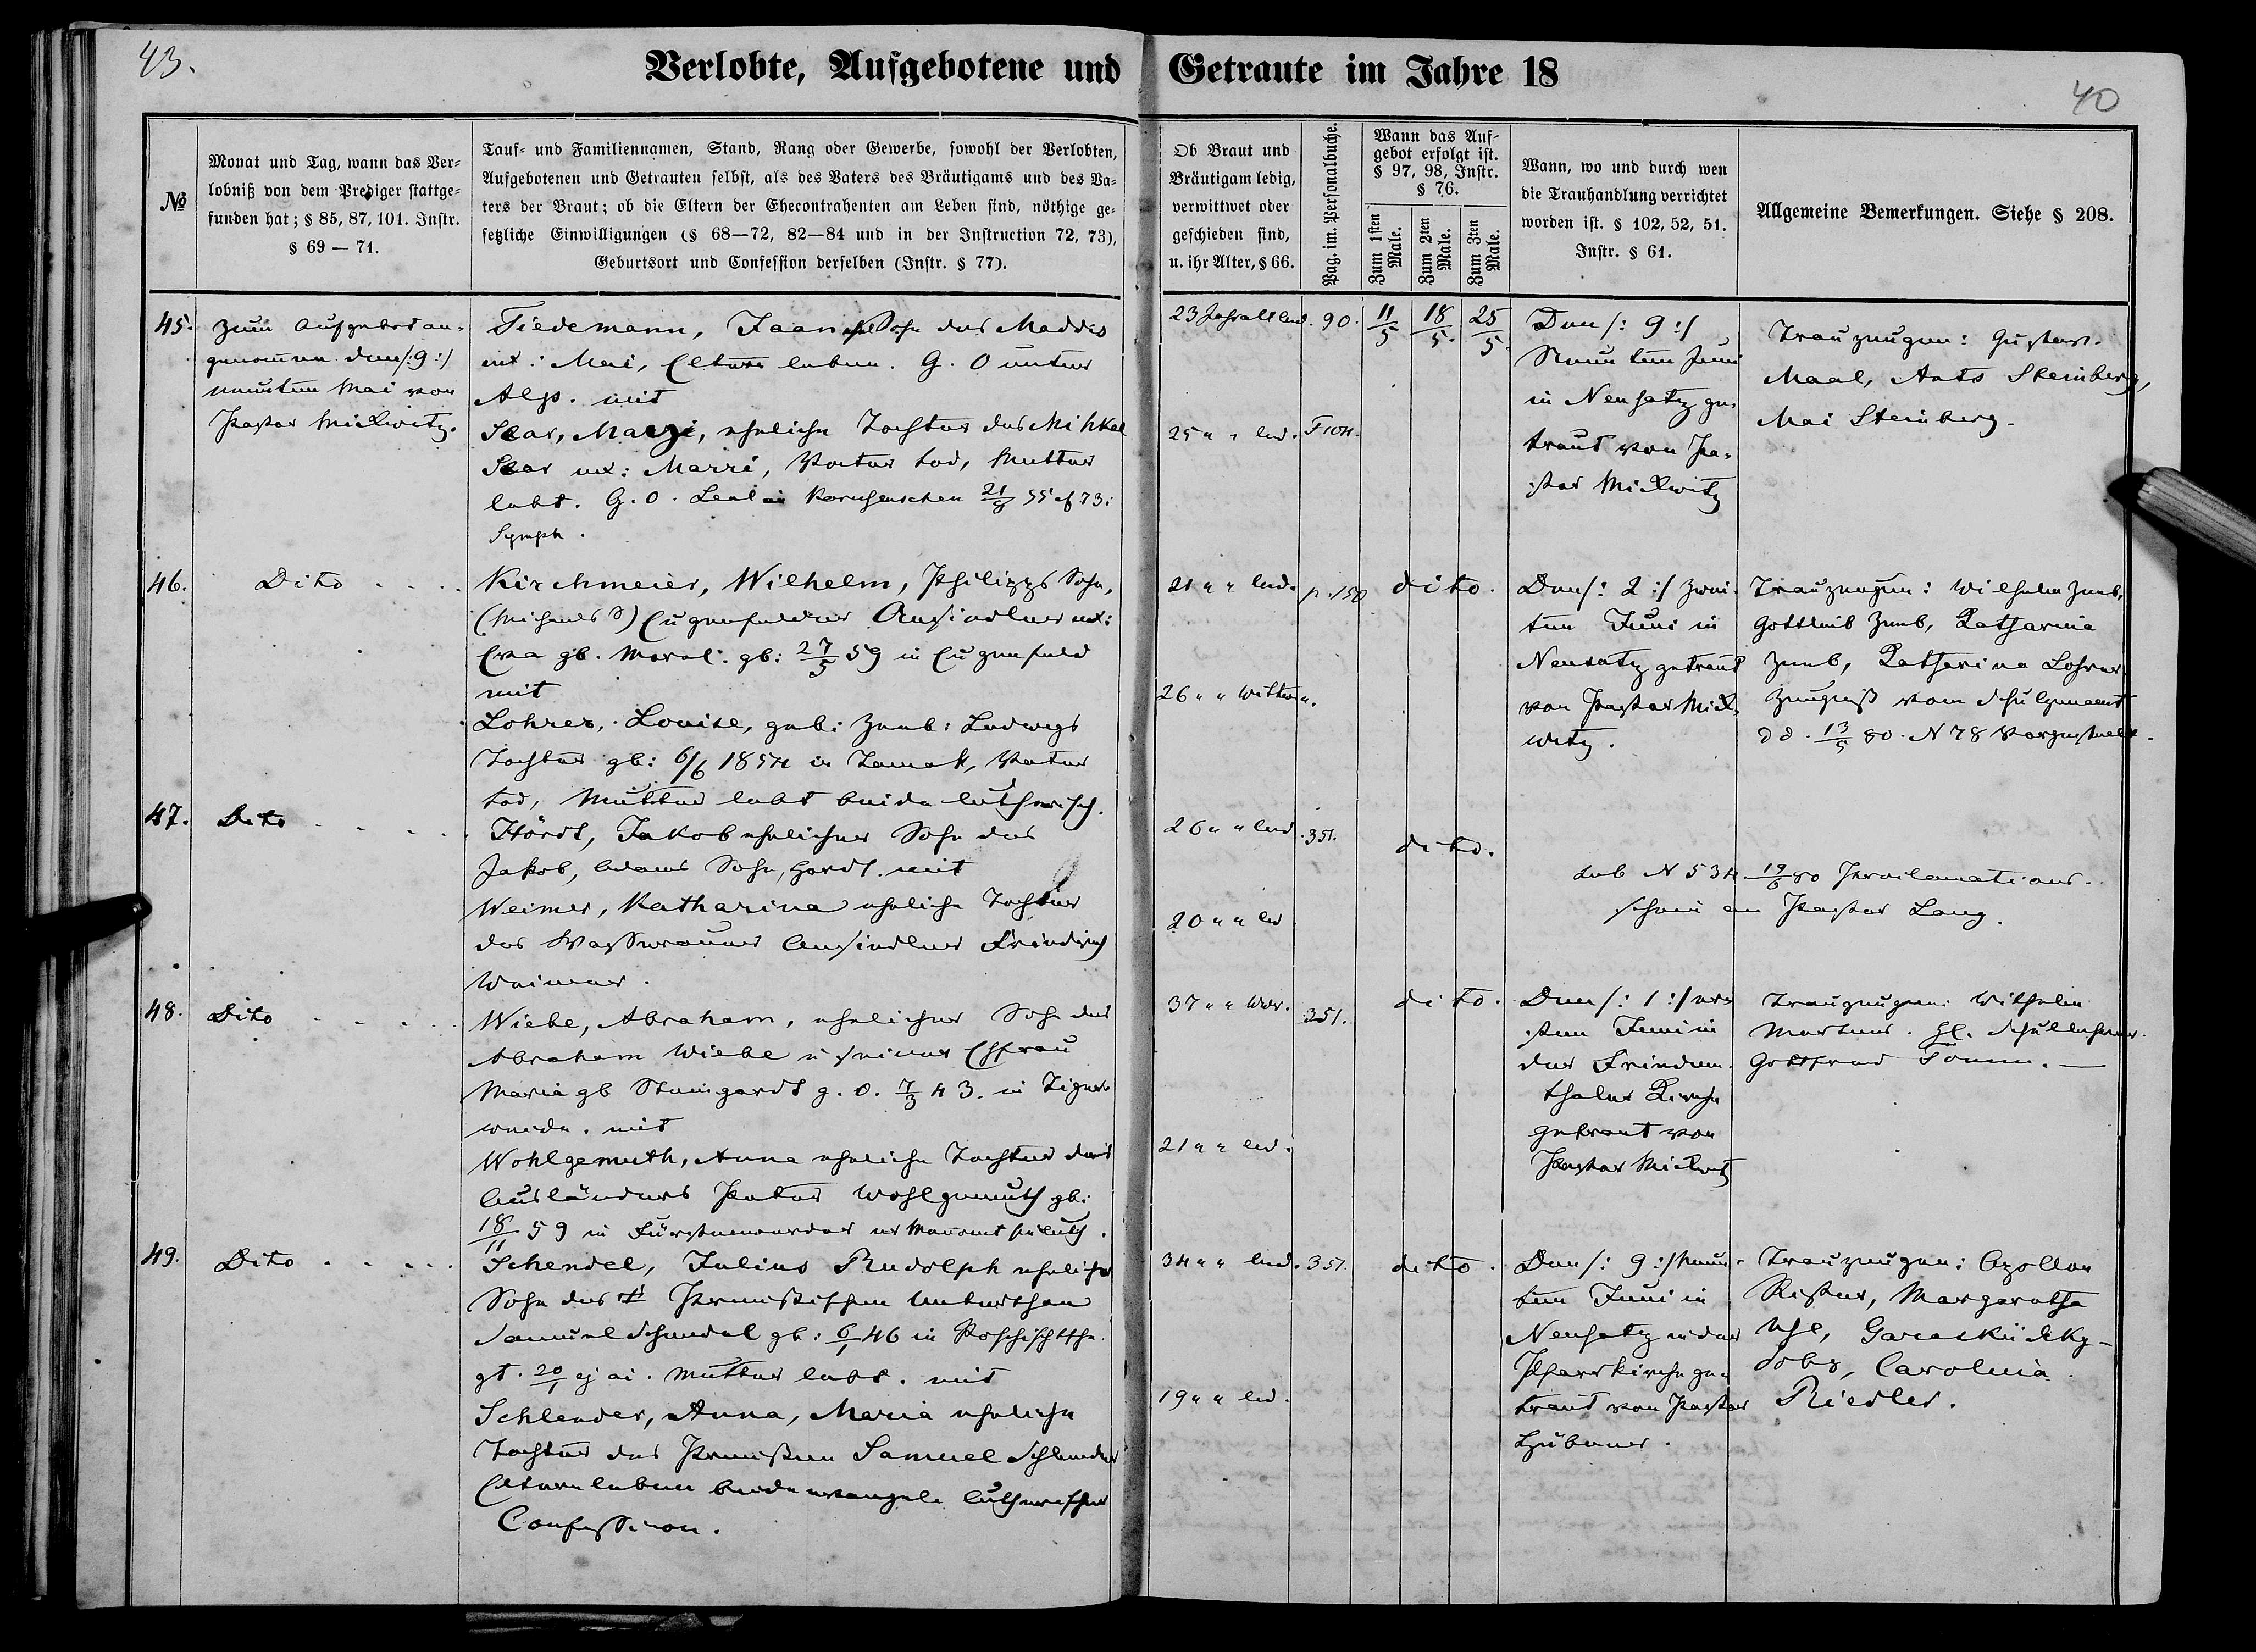 43.
Verlobte, Aufgebotene und Getraute im Jahre 18
40
№
Monat und Tag, wann das Ver-
lobniß von dem Prediger stattge-
funden hat; § 85, 87, 101. Instr.
§ 69 — 71.
Tauf- und Familiennamen, Stand, Rang oder Gewerbe, sowohl der Verlobten,
Aufgebotenen und Getrauten selbst, als des Vaters des Bräutigams und des Va-
ters der Braut; ob die Eltern der Ehecontrahenten am Leben sind, nöthige ge-
setzliche Einwilligungen (§ 68—72, 82—84 und in der Instruction 72, 73),
Geburtsort und Confession derselben (Instr. § 77).
Ob Braut und
Bräutigam ledig,
verwittwet oder
geschieden sind,
u. ihr Alter, § 66.
Pag. im. Personalbuche.
Wann das Auf-
gebot erfolgt ist.
§ 97, 98, Instr.
§ 76.
Zum 1sten Male.
Zum 2ten Male.
Zum 3ten Male.
Wann, wo und durch wen
die Trauhandlung verrichtet
worden ist. § 102, 52, 51.
Instr. § 61.
Allgemeine Bemerkungen. Siehe § 208.
45.
Zum Aufgebot an-
genommen den /:9:/
neunten Mai von
Pastor Mickwitz.
Tiedemann, Jaan Sohn des Maddis
ux: Mai, Eltern leben. G. O unter
Alp. mit
Saar, Marri, eheliche Tochter des Mihkel
Saar ux: Marri, Vater tod, Mutter
lebt. G. O. Leal in 21/8 55 cf 73:
Symph.
23 Jahr alt led.
90.
11/5
18/5.
25/5.
25 " " led.
Den /: 9:/
Neunten Juni
in Neusatz ge-
traut von Pa-
stor Mickwitz
Trauzeugen: Gustav
Maal, Ants Steinberg,
Mai Steinberg.
46.
Dito
Kirchmeier, Wilhelm, Philipps Sohn,
(Michaels S) Eugenfelder Ansiedler ux:
Eva gb. gb: 27/5 59 in Eugenfeld
mit
Lohrer, Louise, geb: Zeeb: Ludwigs
Tochter gb: 6/6 1854 in Tamak, Vater
tod, Mutter lebt beide lutherisch.
21 " " led.
p. 150
dito.
26 " " Wittwe.
Den /: 2:/ zwei-
ten Juni in
Neusatz getraut
von Pastor Mick-
witz.
Trauzeugen: Wilhelm Zeeb,
Gottlieb Zeeb, Katharina
Zeeb, Katharina Lohrer
Zeugniß vom Schulzenamt
dd. 13/5 80. N 78 vorgestellt.
47.
Dito
Hördt, Jakob ehelicher Sohn des
Jakob, Adams Sohn, Hördt. mit
Weimer, Katharina eheliche Tochter
des Wasserauer Ansiedlers Friedrich
Weimer.
26 " " led.
351.
dito.
20 " " led
sub N 534. 19/6 80 Proclamations-
schein an Pastor Lang.
48.
Dito
Wiebe, Abraham, ehelicher Sohn des
Abraham Wiebe u seiner Ehfrau
Maria gb g. O. 7/3 43. in Tiger-
weide. mit
Wohlgemuth, Anna eheliche Tochter des
Ausländers Peter Wohlgemuth gb:
18/11 59 in Fürstenwerder
37 " " Wwr.
351.
dito.
21 " " led.
Den /: 1:/ er-
sten Juni in
der Frieden-
thaler Kirche
getraut von
Pastor Mickwitz
Trauzeugen: Wilhelm
Martens. Schullehrer
Gottfried
49.
Dito
Schendel, Julius Rudolph ehelicher
Sohn des Preußischen Unterthan
Samuel Schendel gb: 6/1 46 in
gt. 20/1 ej ai. Mutter lebt. mit
Schlender, Anna, Maria eheliche
Tochter des Preußen Samuel Schlender
Eltern leben beide evangel. lutherischer
Confession.
34 " " led.
351.
dito.
19 " " led.
Den /: 9:/ neun-
ten Juni in
Neusatz in der
Pfarrkirche ge-
traut von Pastor
Hübner.
Trauzeugen: Apollon
Margaretha
Carolina
Riedler.